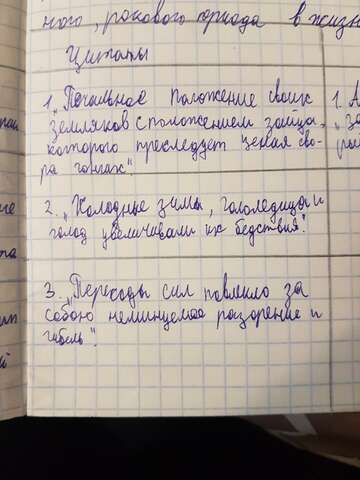 ного, рокового периода в жизн
Цитаты
1. „Печальное положение своих
земляков с положением зайца,
которого преследует целая сво-
ра гончих".
2. „Холодные зимы, гололедицы и
голод увеличивали их бедствия".
3. „Переходы сил повлекло за
собою неминуемое разорение и
гибель".
1. А
„за